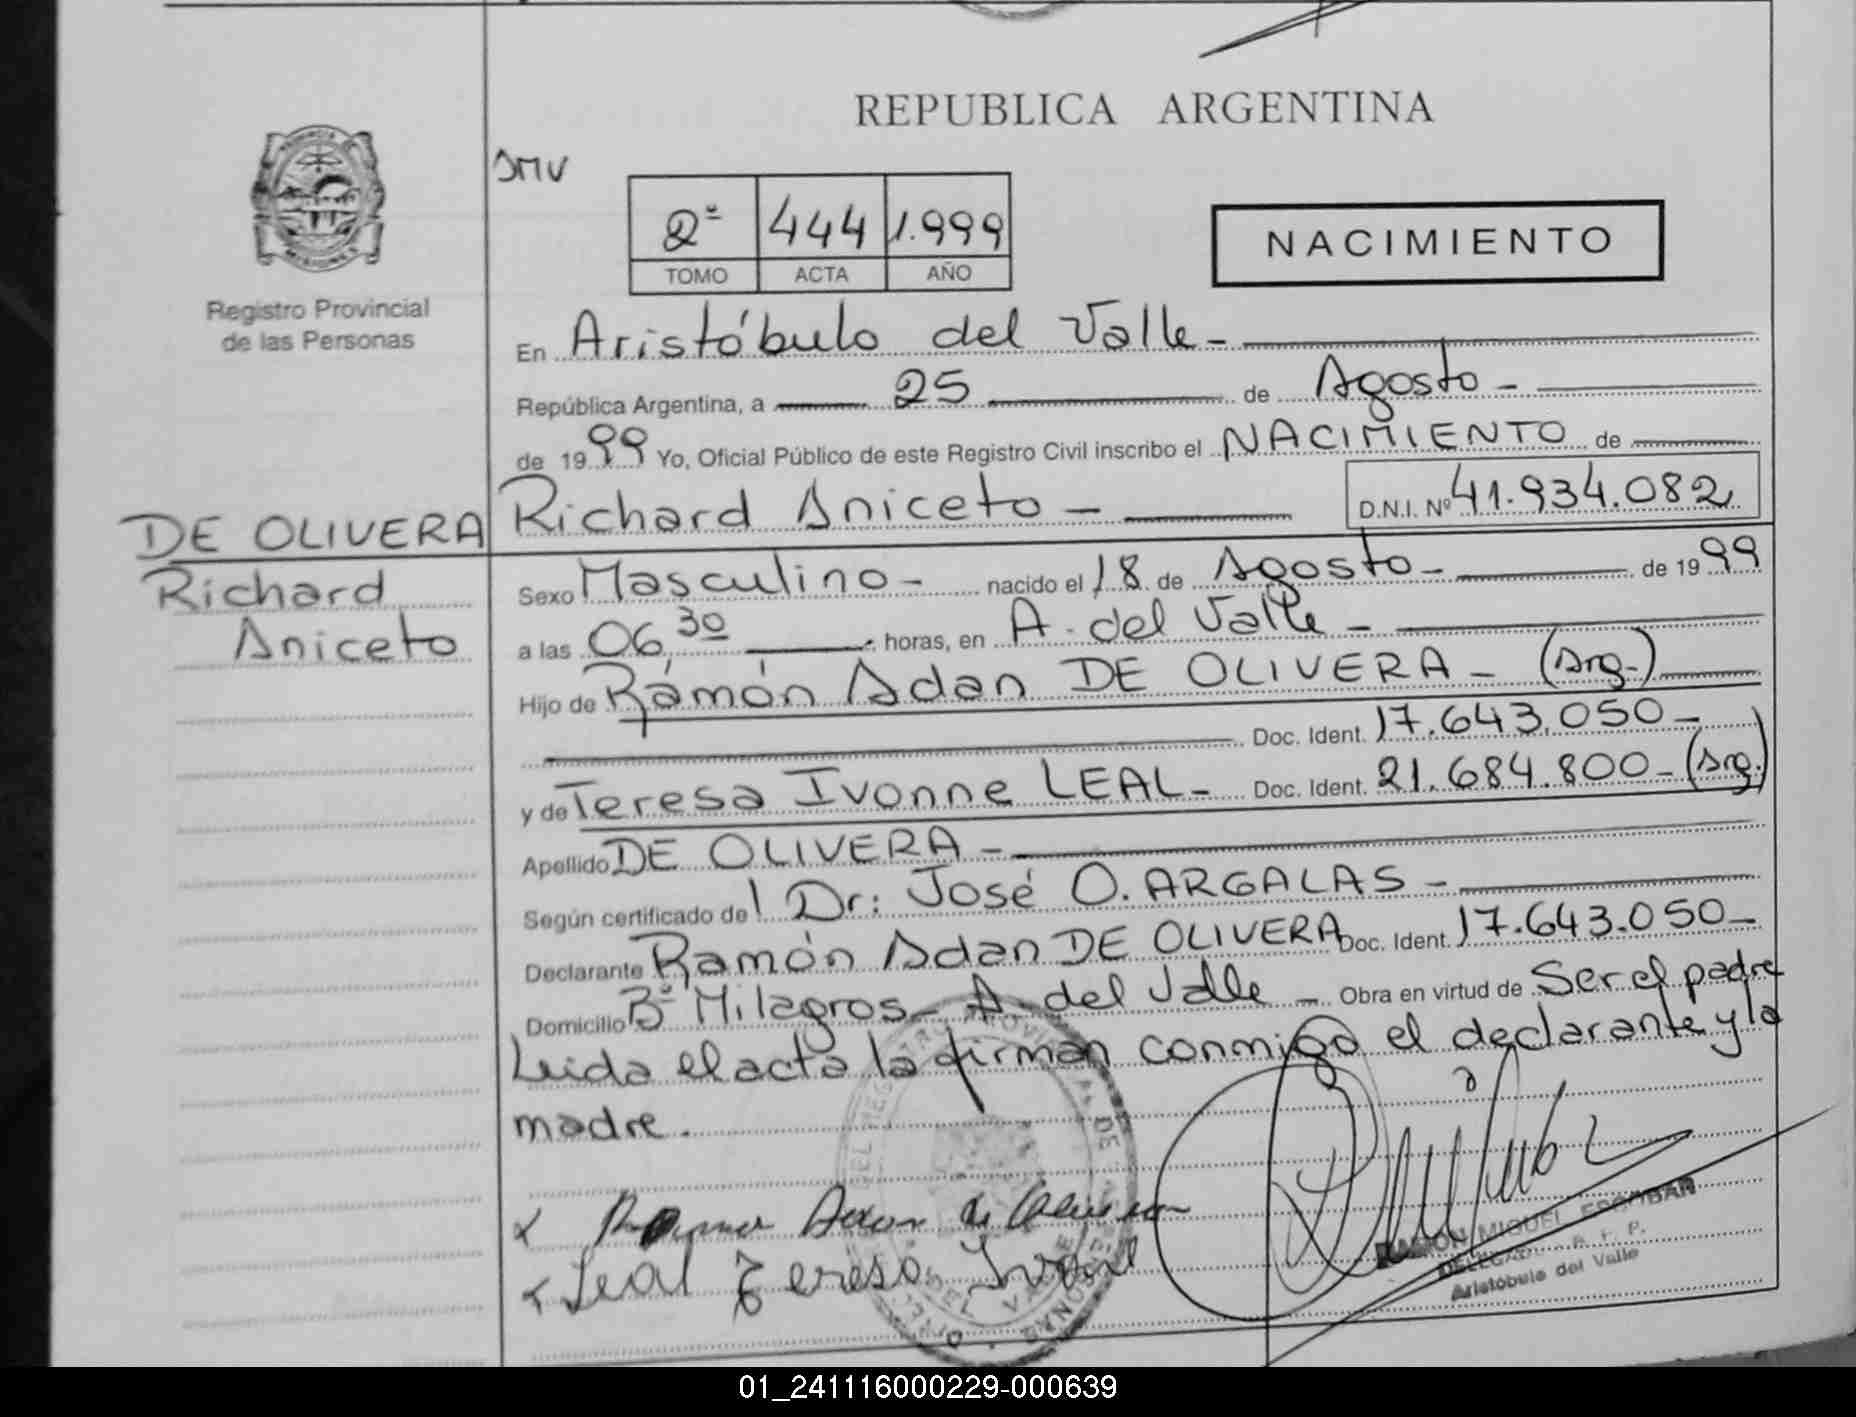 REPUBLICA ARGENTINA
SMV
2º 444 1.999
TOMO ACTA AÑO
NACIMIENTO
Registro Provincial
de las Personas
En Aristóbulo del Valle-
República Argentina, a 25 de Agosto-
de 1999 Yo, Oficial Público de este Registro Civil inscribo el NACIMIENTO de
Richard Aniceto- D.N.I. Nº 41.934.082
DE OLIVERA
Richard
Aniceto
Sexo Masculino- nacido el 18 de Agosto- de 1999
a las 06,30 horas, en A. del Valle-
Hijo de Ramón Adan DE OLIVERA- (Arg.)
Doc. Ident. 17.643.050-
y de Teresa Ivonne LEAL- Doc. Ident. 21.684.800-(Arg.)
Apellido DE OLIVERA-
Según certificado del Dr: José O. ARGALAS-
Declarante Ramón Adan DE OLIVERA Doc. Ident. 17.643.050-
Domicilio Bº Milagros- A. del Valle- Obra en virtud de Ser el padre
Leida el acta la firman conmigo el declarante y la
madre.
Adan de
Leal Teresa
RAMON MIGUEL ESCOBAR
Aristobulo del Valle
01_241116000229-000639